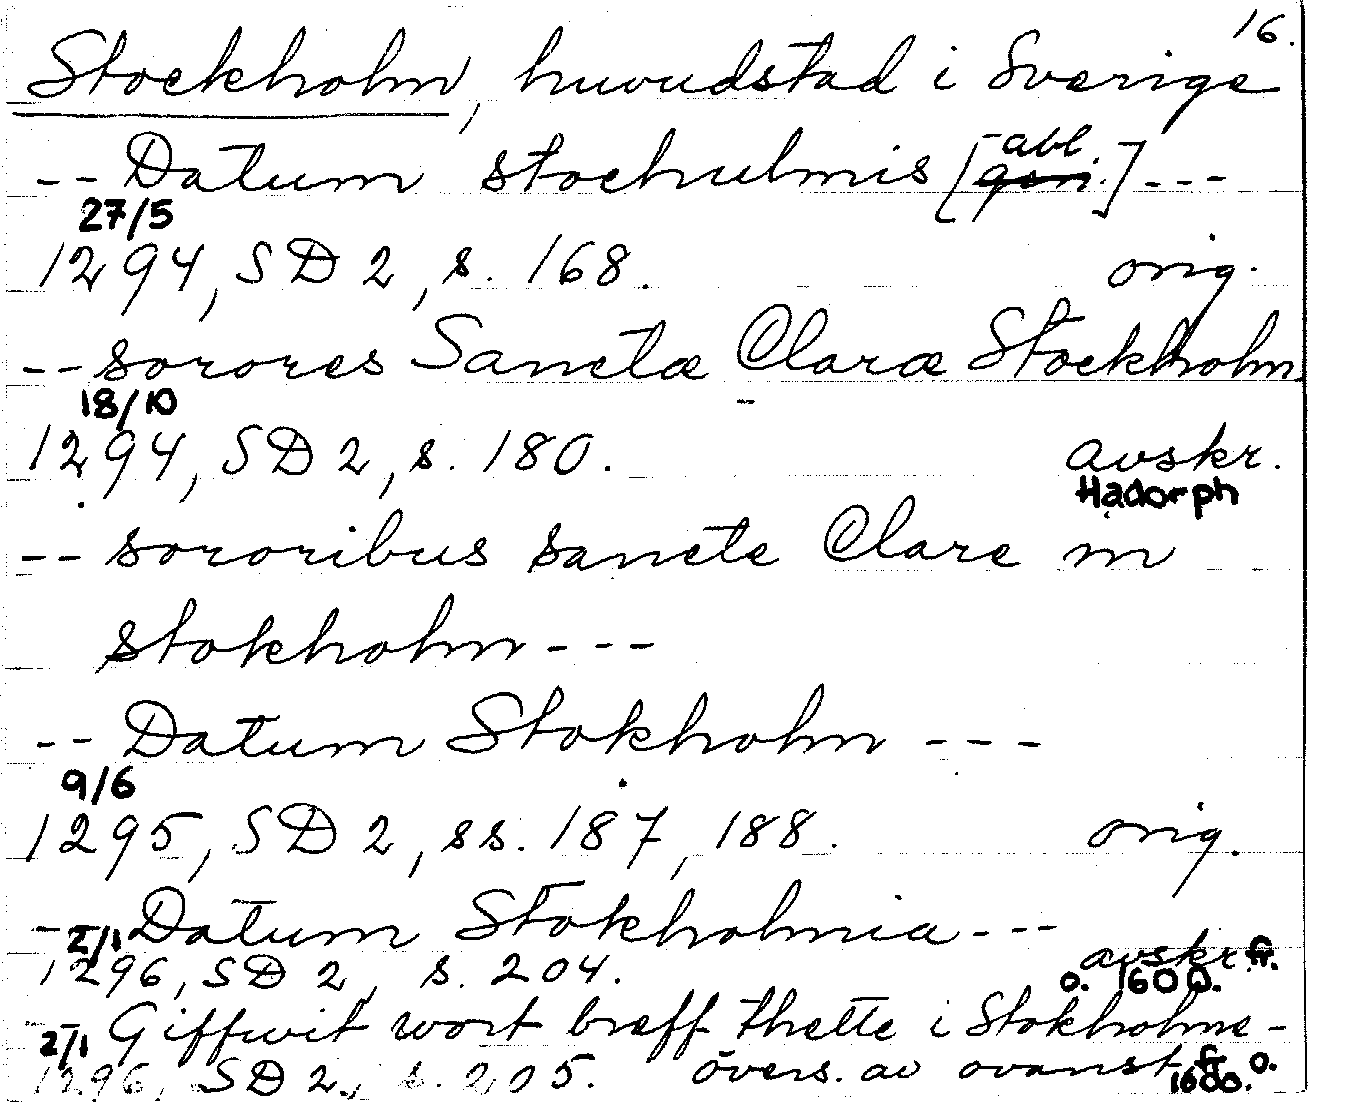 16.
Stockholm, huvudstad i Sverige
-- Datum stochulmis [abl. gen.] ---
27/5
1294, SD 2, s. 168. orig.
-- sorores Sanctæ Claræ Stockholm
18/10
1294, SD 2, s. 180. avskr.
Hadorph
-- sororibus sancte Clare in
stokholm ---
-- Datum Stokholm ---
9/6
1295, SD 2, ss. 187, 188. orig.
-- Datum Stokholmia ---
2/1
1296, SD 2, s. 204. avskr. fr.
o. 1600.
-- Giffwit wort breff thette i Stokholme -
2/1
1296, SD 2, s. 205. övers. av ovanst. fr. o.
1600.